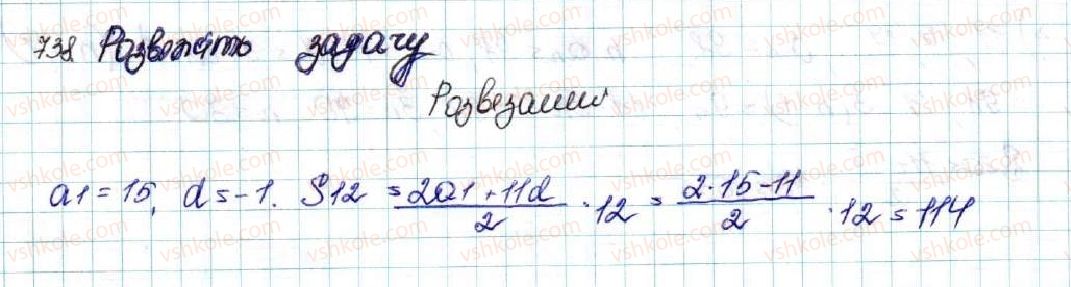 738 Розвяжіть задачу
Розвезання
a1 = 15, d = -1. S12 = (2a1 + 11d)/2 · 12 = (2·15-11)/2 · 12 = 114